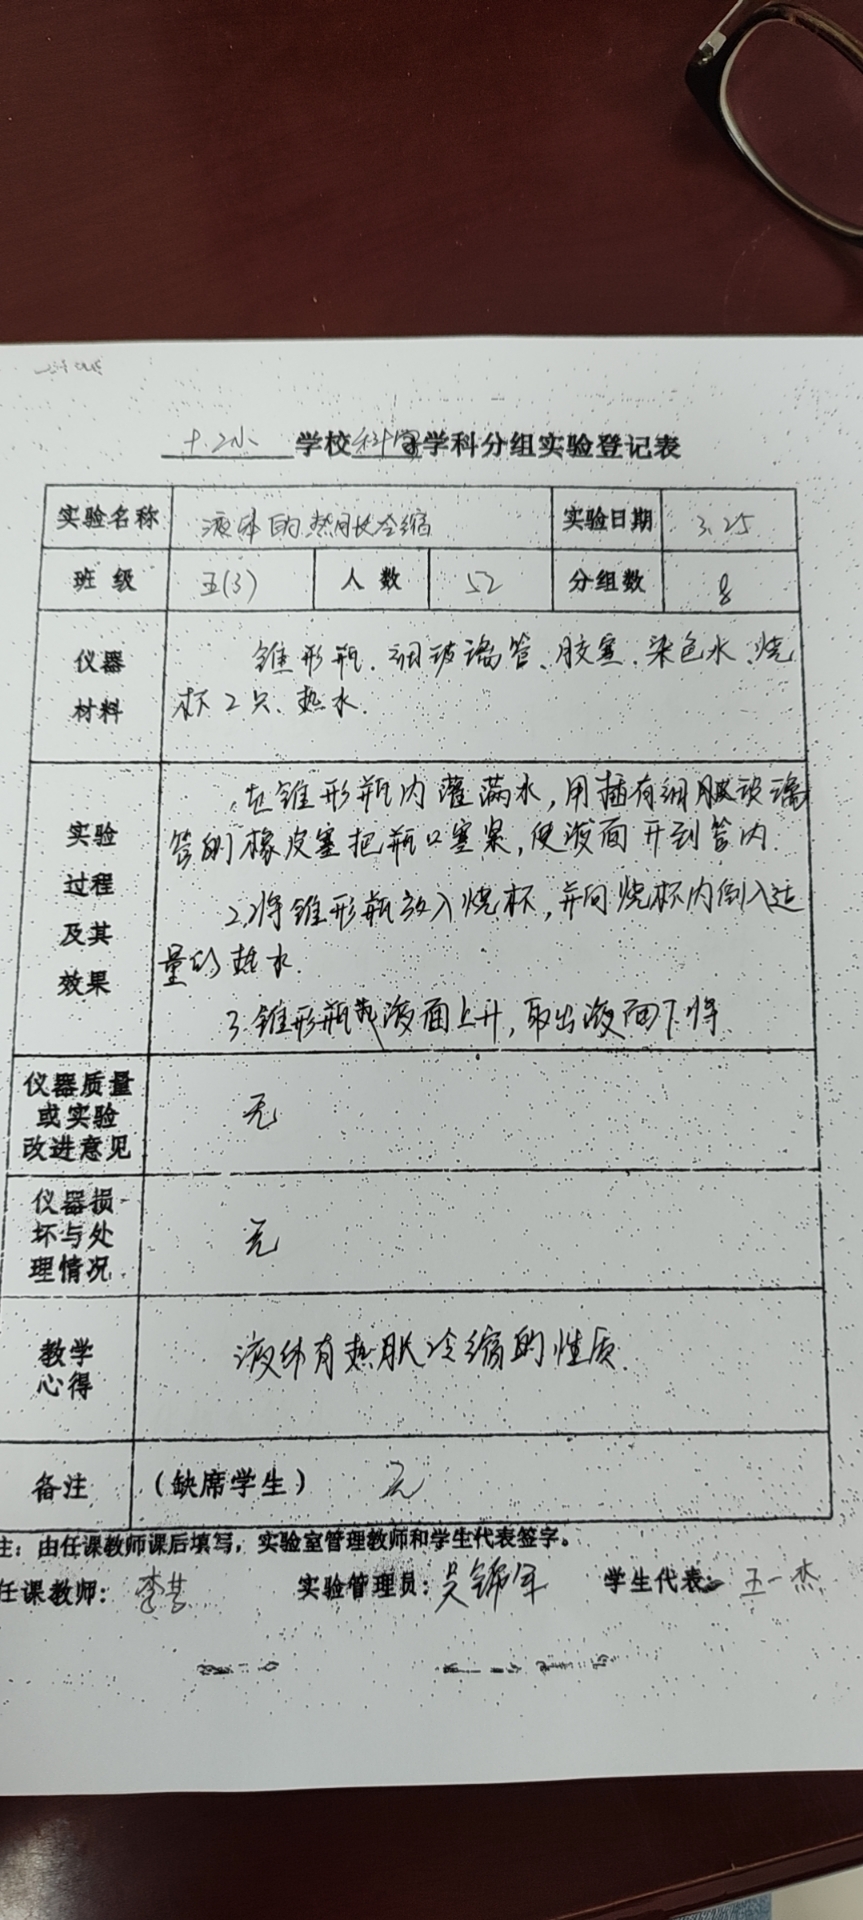 十2小 学校科学学科分组实验登记表
实验名称 液体的热胀冷缩 实验日期 3.25
班级 五(3) 人数 52 分组数 8
仪器材料 锥形瓶、细玻璃管、胶塞、染色水、烧
杯2只、热水.
实验过程及其效果
1.在锥形瓶内灌满水,用插有细玻璃
管的橡皮塞把瓶口塞紧,使液面升到管内.
2.将锥形瓶放入烧杯,并向烧杯内倒入适
量的热水.
3.锥形瓶内液面上升,取出液面下将
仪器质量或实验改进意见 无
仪器损坏与处理情况 无
教学心得 液体有热胀冷缩的性质.
备注 (缺席学生) 无
注:由任课教师课后填写,实验室管理教师和学生代表签字。
任课教师: 实验管理员:吴锦年 学生代表: 王一杰